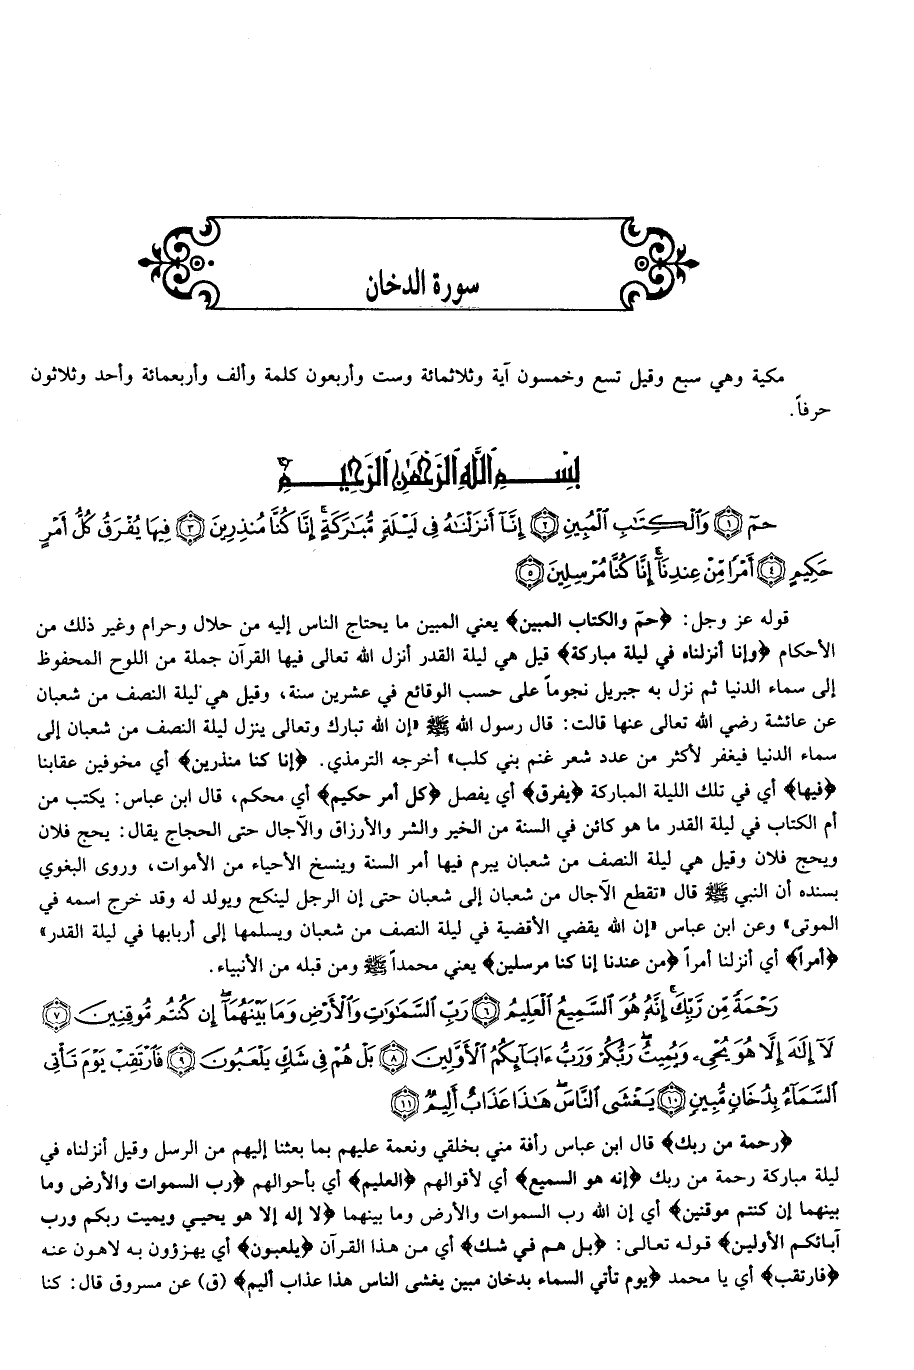 سورة الدخان
مكية وهي سبع وقيل تسع وخمسون آية وثلاثمائة وست وأربعون كلمة وألف وأربعمائة وأحد وثلاثون
حرفاً.
بِسْمِ اللَّهِ الرَّحْمَٰنِ الرَّحِيمِ
حمٓ ﴿١﴾ وَٱلْكِتَٰبِ ٱلْمُبِينِ ﴿٢﴾ إِنَّآ أَنزَلْنَٰهُ فِى لَيْلَةٍ مُّبَٰرَكَةٍ ۚ إِنَّا كُنَّا مُنذِرِينَ ﴿٣﴾ فِيهَا يُفْرَقُ كُلُّ أَمْرٍ
حَكِيمٍ ﴿٤﴾ أَمْرًا مِّنْ عِندِنَآ ۚ إِنَّا كُنَّا مُرْسِلِينَ ﴿٥﴾
قوله عز وجل: ﴿حمّ والكتاب المبين﴾ يعني المبين ما يحتاج الناس إليه من حلال وحرام وغير ذلك من
الأحكام ﴿وإنا أنزلناه في ليلة مباركة﴾ قيل هي ليلة القدر أنزل الله تعالى فيها القرآن جملة من اللوح المحفوظ
إلى سماء الدنيا ثم نزل به جبريل نجوماً على حسب الوقائع في عشرين سنة، وقيل هي ليلة النصف من شعبان
عن عائشة رضي الله تعالى عنها قالت: قال رسول الله ﷺ «إن الله تبارك وتعالى ينزل ليلة النصف من شعبان إلى
سماء الدنيا فيغفر لأكثر من عدد شعر غنم بني كلب» أخرجه الترمذي. ﴿إنا كنا منذرين﴾ أي مخوفين عقابنا
﴿فيها﴾ أي في تلك الليلة المباركة ﴿يفرق﴾ أي يفصل ﴿كل أمر حكيم﴾ أي محكم، قال ابن عباس: يكتب من
أم الكتاب في ليلة القدر ما هو كائن في السنة من الخير والشر والأرزاق والآجال حتى الحجاج يقال: يحج فلان
ويحج فلان وقيل هي ليلة النصف من شعبان يبرم فيها أمر السنة وينسخ الأحياء من الأموات، وروى البغوي
بسنده أن النبي ﷺ قال «تقطع الآجال من شعبان إلى شعبان حتى إن الرجل لينكح ويولد له وقد خرج اسمه في
الموتى» وعن ابن عباس «إن الله يقضي الأقضية في ليلة النصف من شعبان ويسلمها إلى أربابها في ليلة القدر»
﴿أمراً﴾ أي أنزلنا أمراً ﴿من عندنا إنا كنا مرسلين﴾ يعني محمداً ﷺ ومن قبله من الأنبياء.
رَحْمَةً مِّن رَّبِّكَ ۚ إِنَّهُۥ هُوَ ٱلسَّمِيعُ ٱلْعَلِيمُ ﴿٦﴾ رَبِّ ٱلسَّمَٰوَٰتِ وَٱلْأَرْضِ وَمَا بَيْنَهُمَآ ۖ إِن كُنتُم مُّوقِنِينَ ﴿٧﴾
لَآ إِلَٰهَ إِلَّا هُوَ يُحْىِۦ وَيُمِيتُ ۖ رَبُّكُمْ وَرَبُّ ءَابَآئِكُمُ ٱلْأَوَّلِينَ ﴿٨﴾ بَلْ هُمْ فِى شَكٍّ يَلْعَبُونَ ﴿٩﴾ فَٱرْتَقِبْ يَوْمَ تَأْتِى
ٱلسَّمَآءُ بِدُخَانٍ مُّبِينٍ ﴿١٠﴾ يَغْشَى ٱلنَّاسَ ۖ هَٰذَا عَذَابٌ أَلِيمٌ ﴿١١﴾
﴿رحمة من ربك﴾ قال ابن عباس رأفة مني بخلقي ونعمة عليهم بما بعثنا إليهم من الرسل وقيل أنزلناه في
ليلة مباركة رحمة من ربك ﴿إنه هو السميع﴾ أي لأقوالهم ﴿العليم﴾ أي بأحوالهم ﴿رب السموات والأرض وما
بينهما إن كنتم موقنين﴾ أي إن الله رب السموات والأرض وما بينهما ﴿لا إله إلا هو يحيي ويميت ربكم ورب
آبائكم الأولين﴾ قوله تعالى: ﴿بل هم في شك﴾ أي من هذا القرآن ﴿يلعبون﴾ أي يهزؤون به لاهون عنه
﴿فارتقب﴾ أي يا محمد ﴿يوم تأتي السماء بدخان مبين يغشى الناس هذا عذاب أليم﴾ (ق) عن مسروق قال: كنا